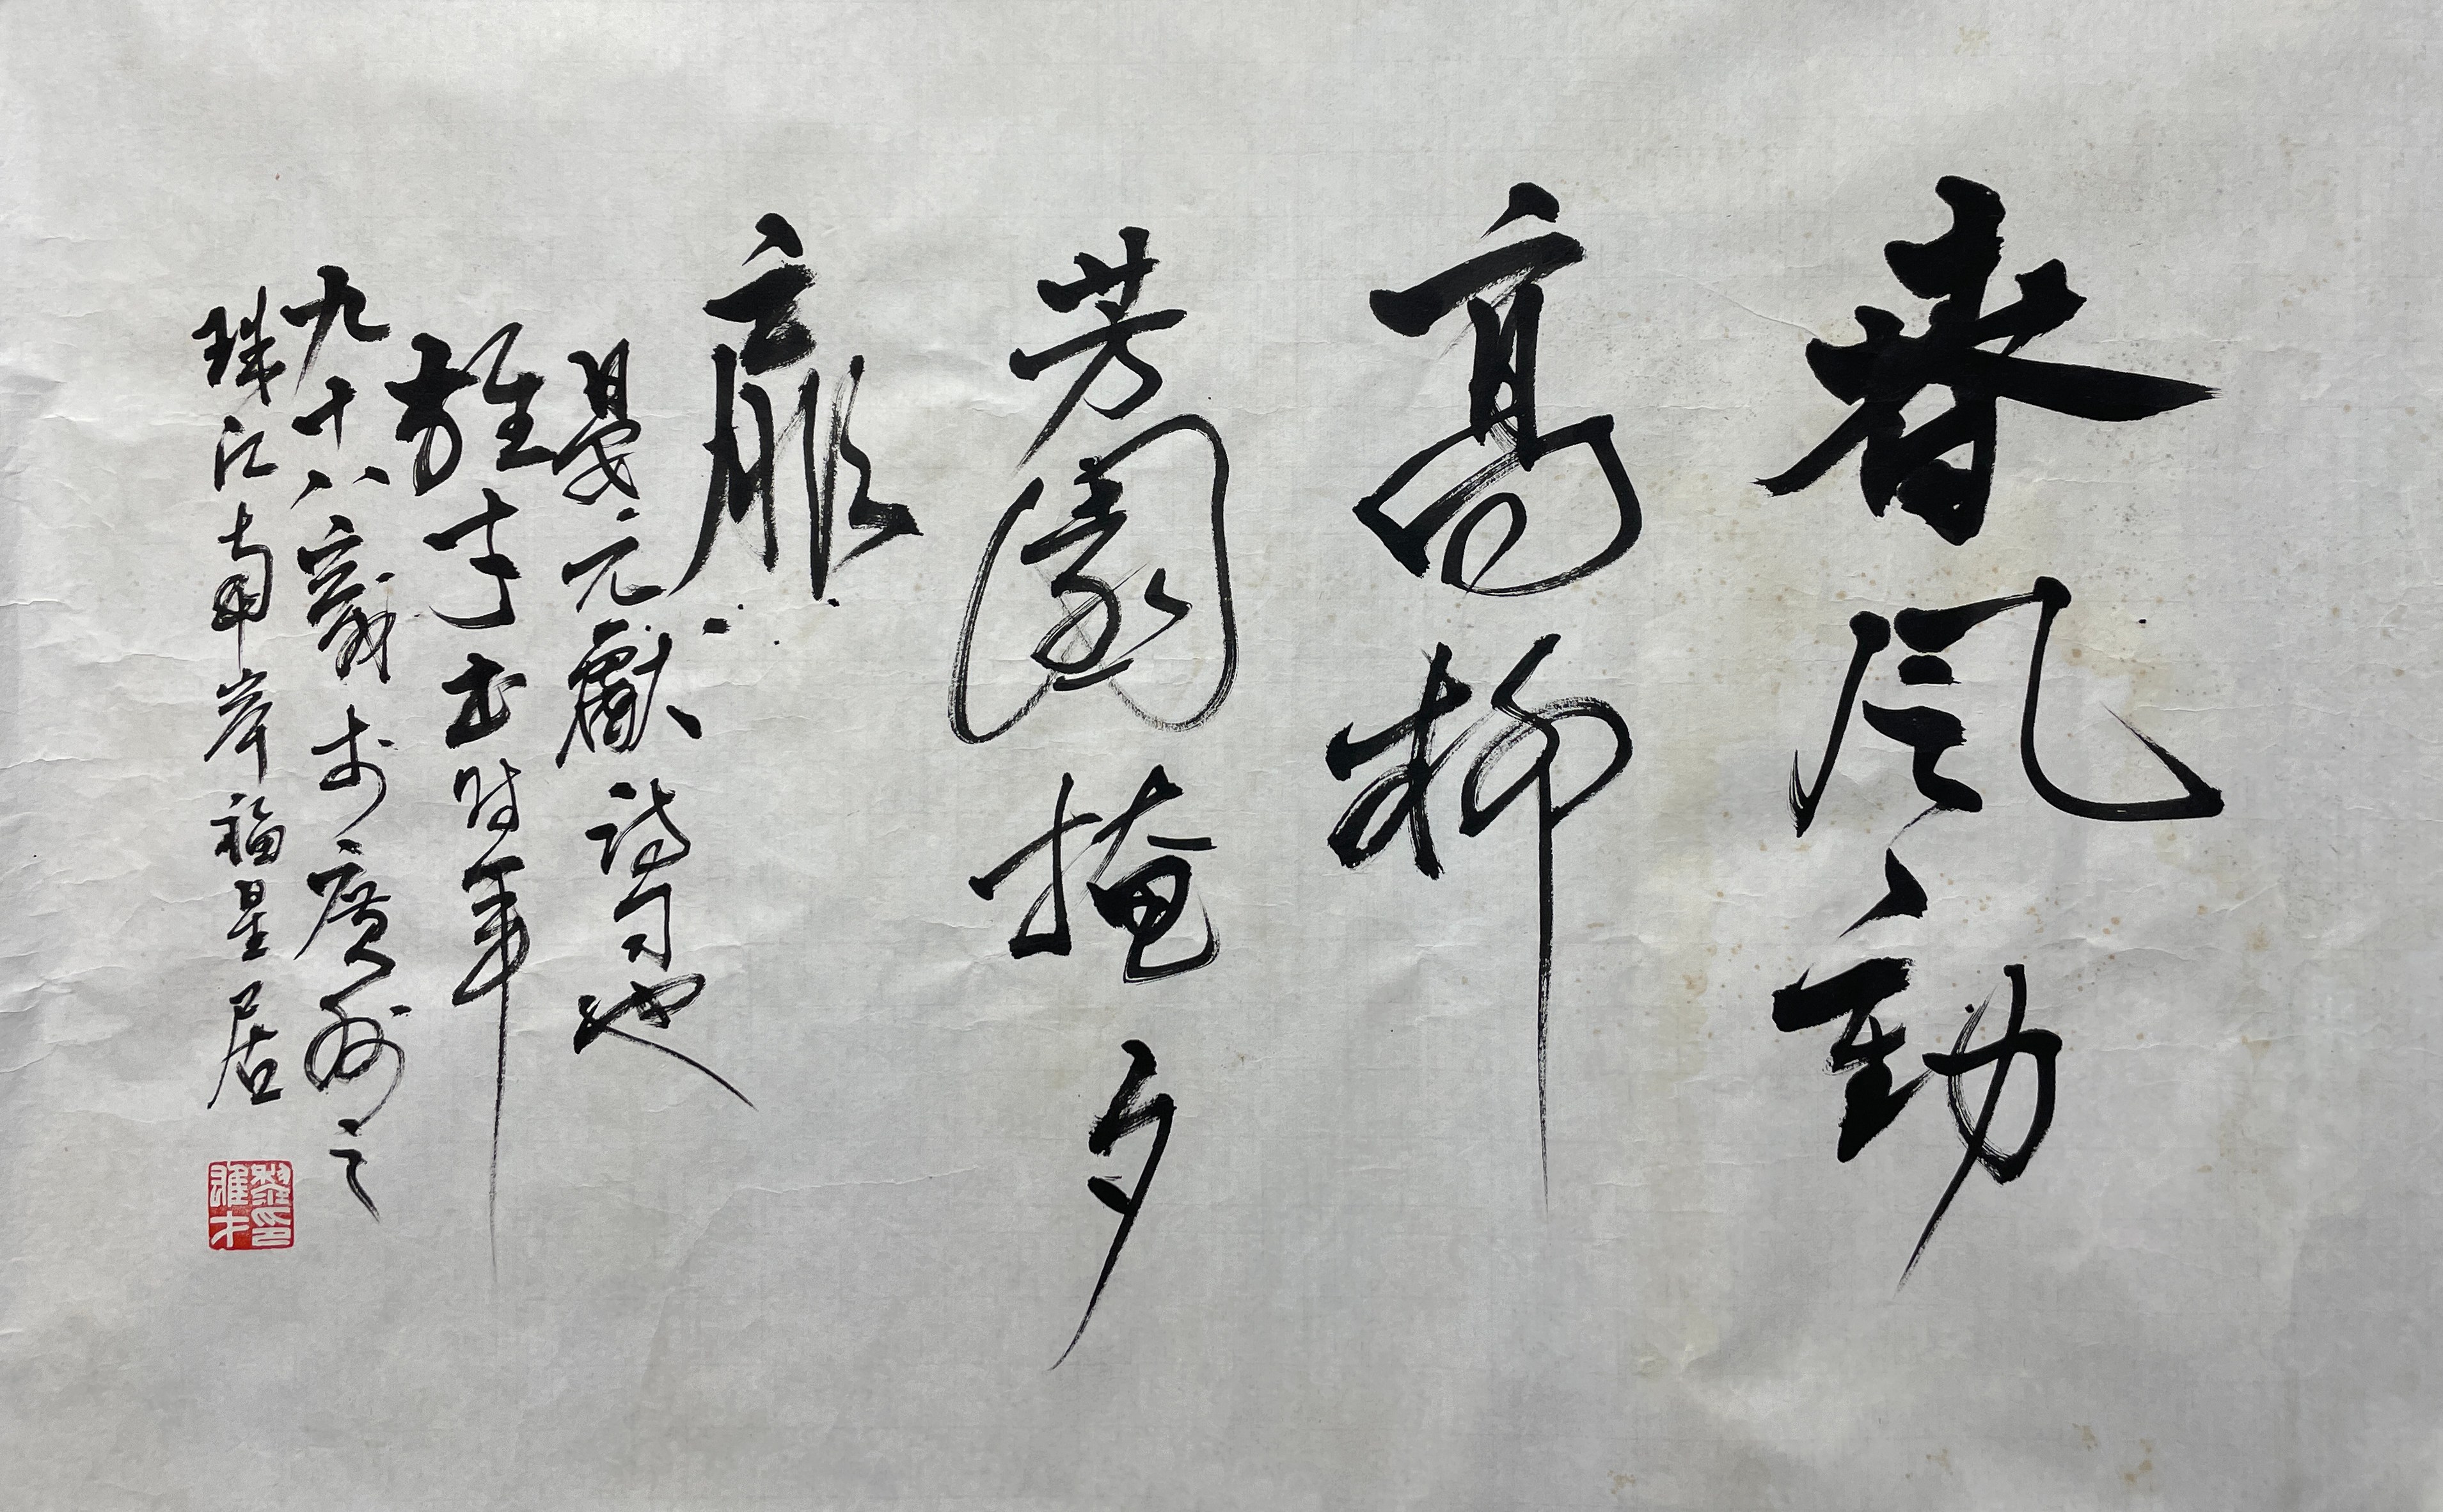 春風動
高柳
芳園掩夕
扉
晏元獻詩句也
雄才書時年
九十八歲於廣州之
珠江南岸福星居
黎雄才印